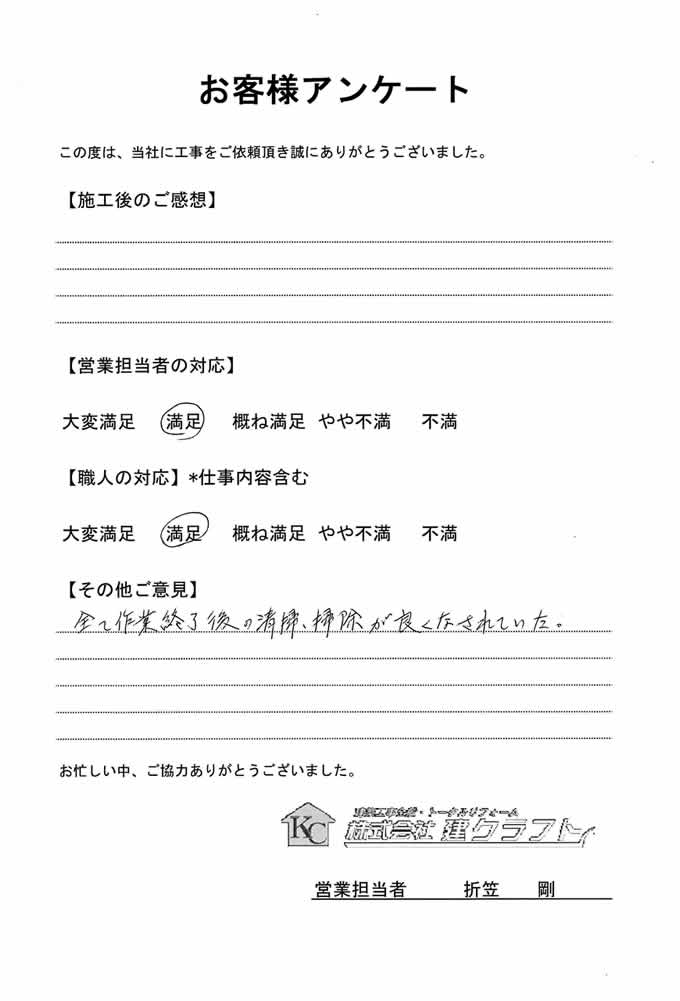 お客様アンケート
この度は、当社に工事をご依頼頂き誠にありがとうございました。
【施工後のご感想】
【営業担当者の対応】
大変満足 満足 概ね満足 やや不満 不満
【職人の対応】*仕事内容含む
大変満足 満足 概ね満足 やや不満 不満
【その他ご意見】
全て作業終了後の清掃、掃除が良くなされていた。
お忙しい中、ご協力ありがとうございました。
KC
・トータルリフォーム
株式会社 建クラフト
営業担当者 折笠 剛